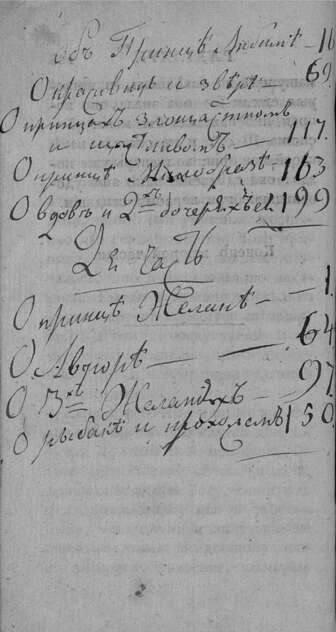 Объ Принцѣ Любимѣ — 16
О красавицѣ и звѣрѣ — 69.
О принцахъ злощастномъ
и щастливомъ — 117.
О принцѣ — 163
О вдовѣ и 2хъ дочеряхъ ея 199
2я часть
О принцѣ Желанѣ — 1.
О Авдорѣ — 64
О 3хъ Желаніяхъ — 97.
О рыбакѣ и прохожемъ 150.